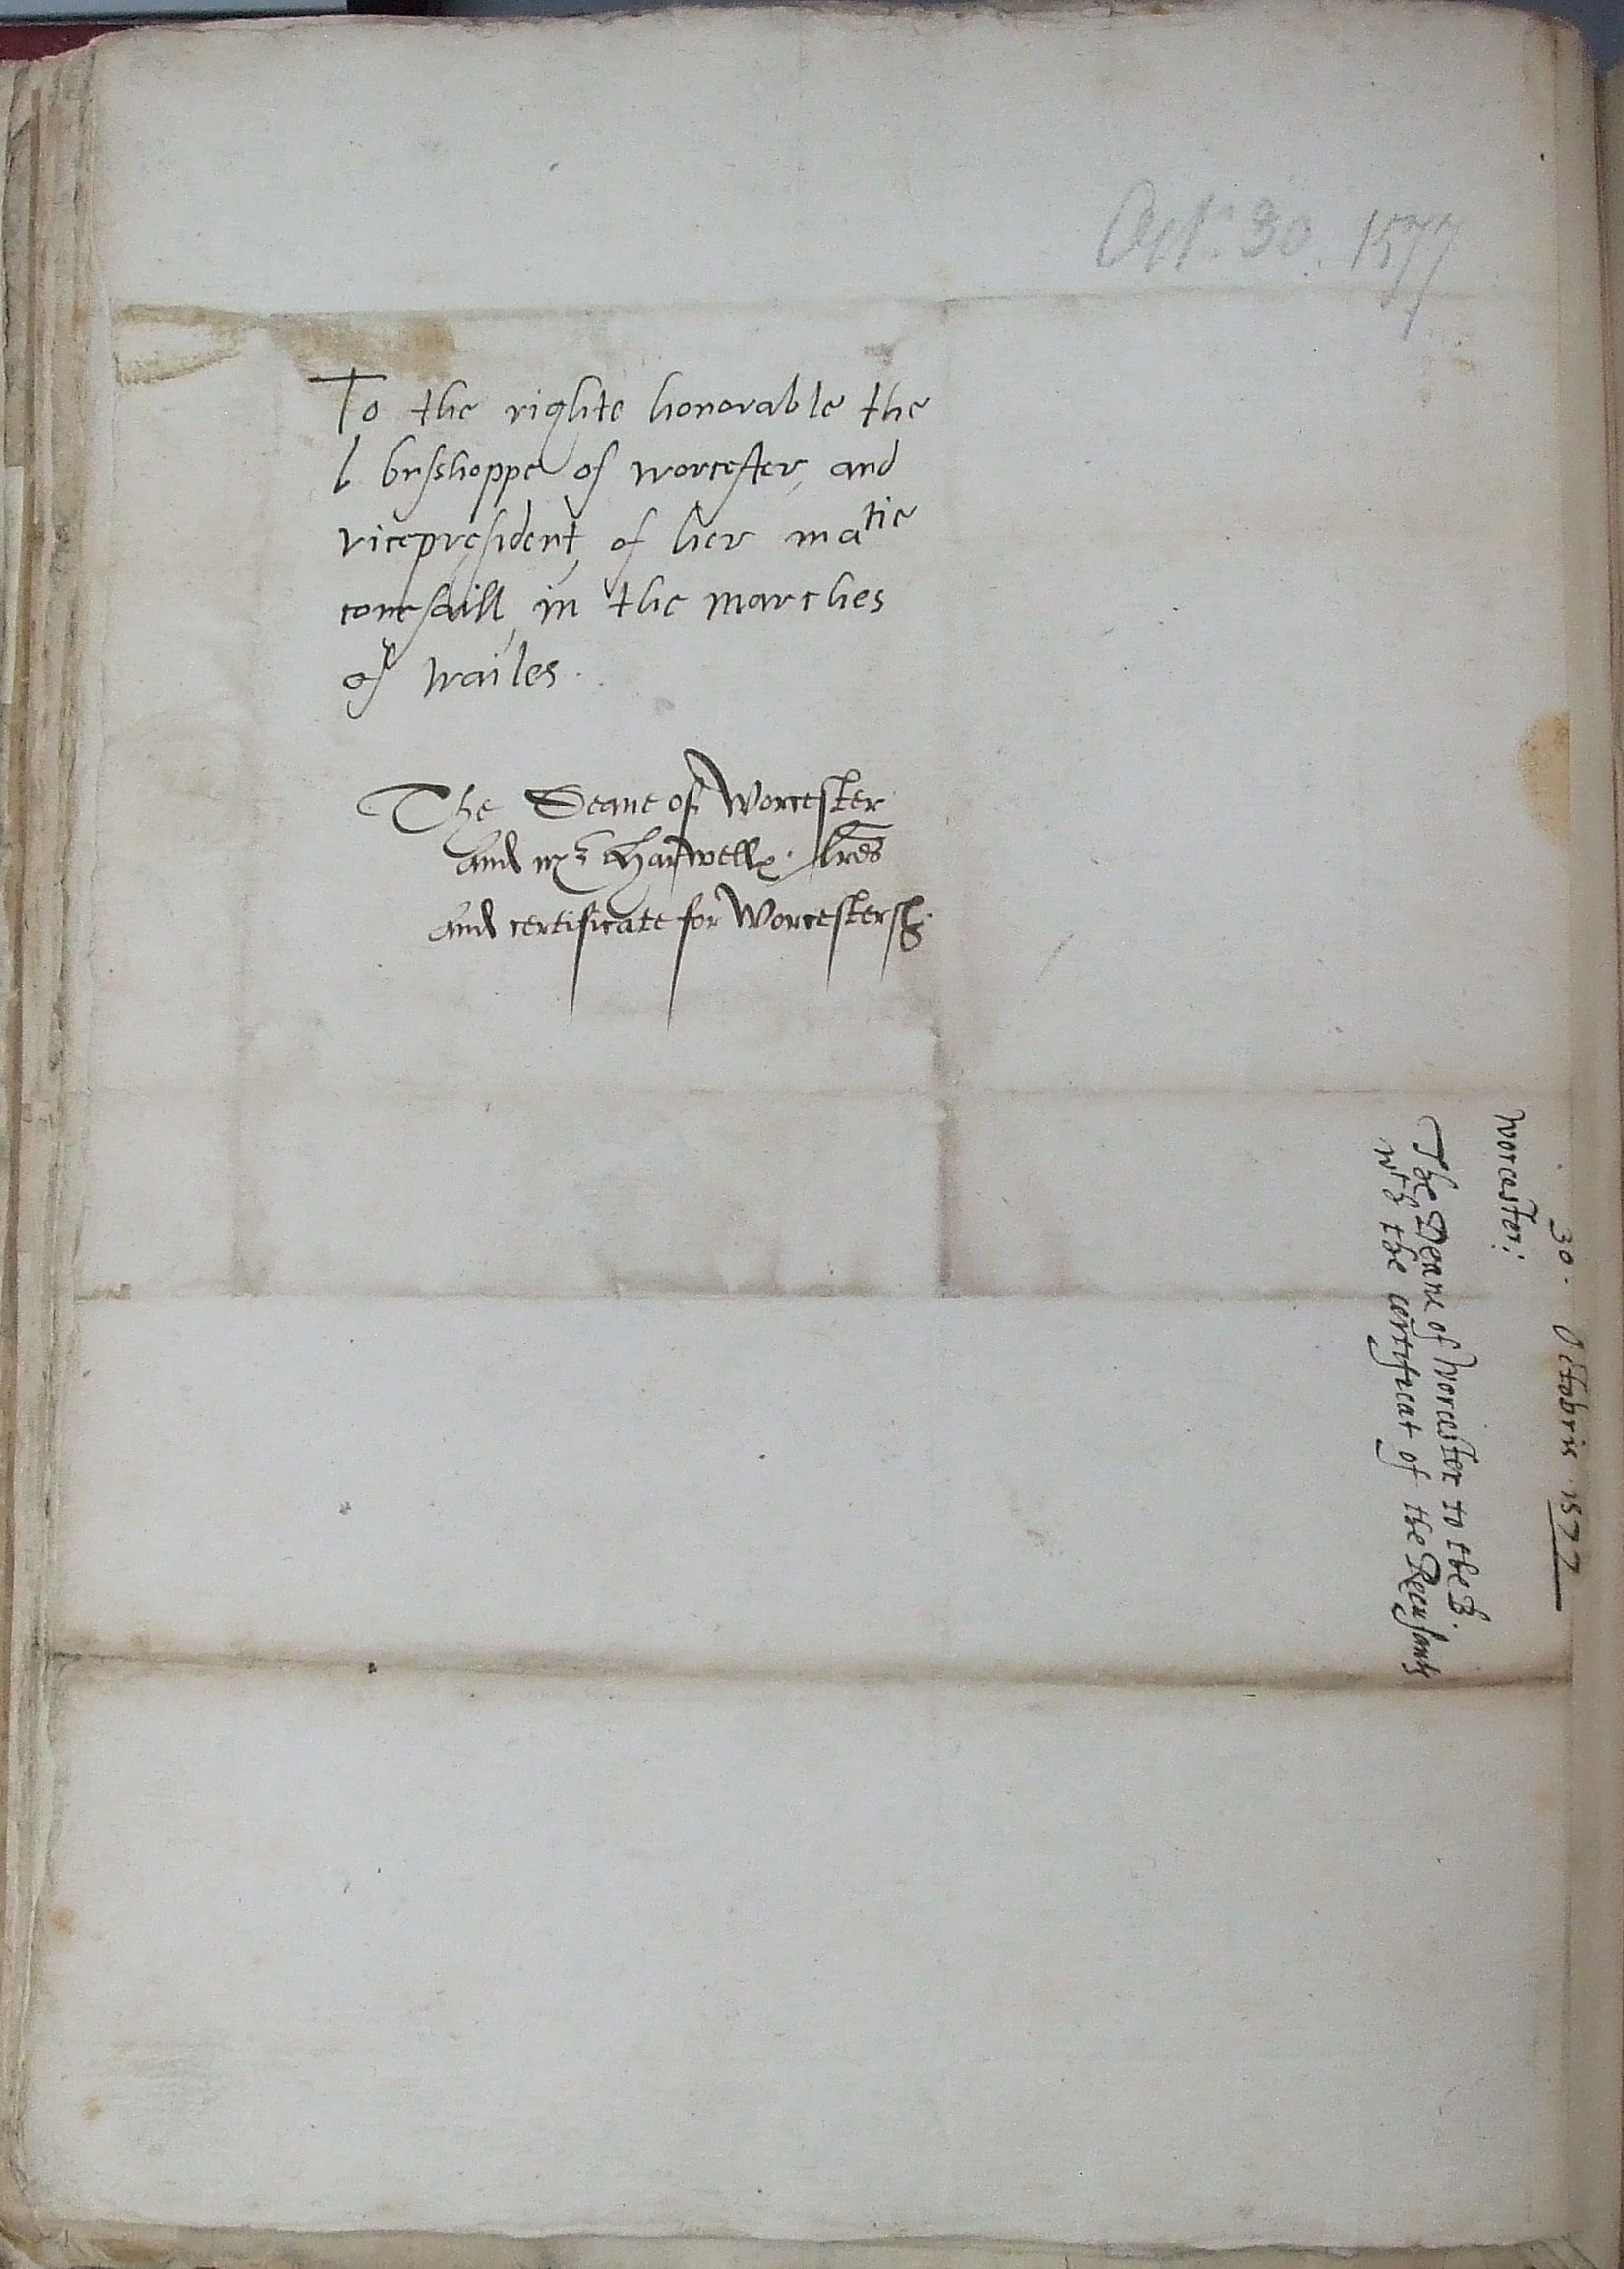 Oct. 30. 1577
To the righte honorable the
l bysshoppe of worcester, and
vicepresident, of her matie
counsaill, in the marches
of wailes.
The Deane of Worcester
and mr Harwell. lres
and certificate for Worcestersh.
30. Octobris 1577
Worcester:
The Deane of Worcester to the B.
wth the certificat of the Recusants